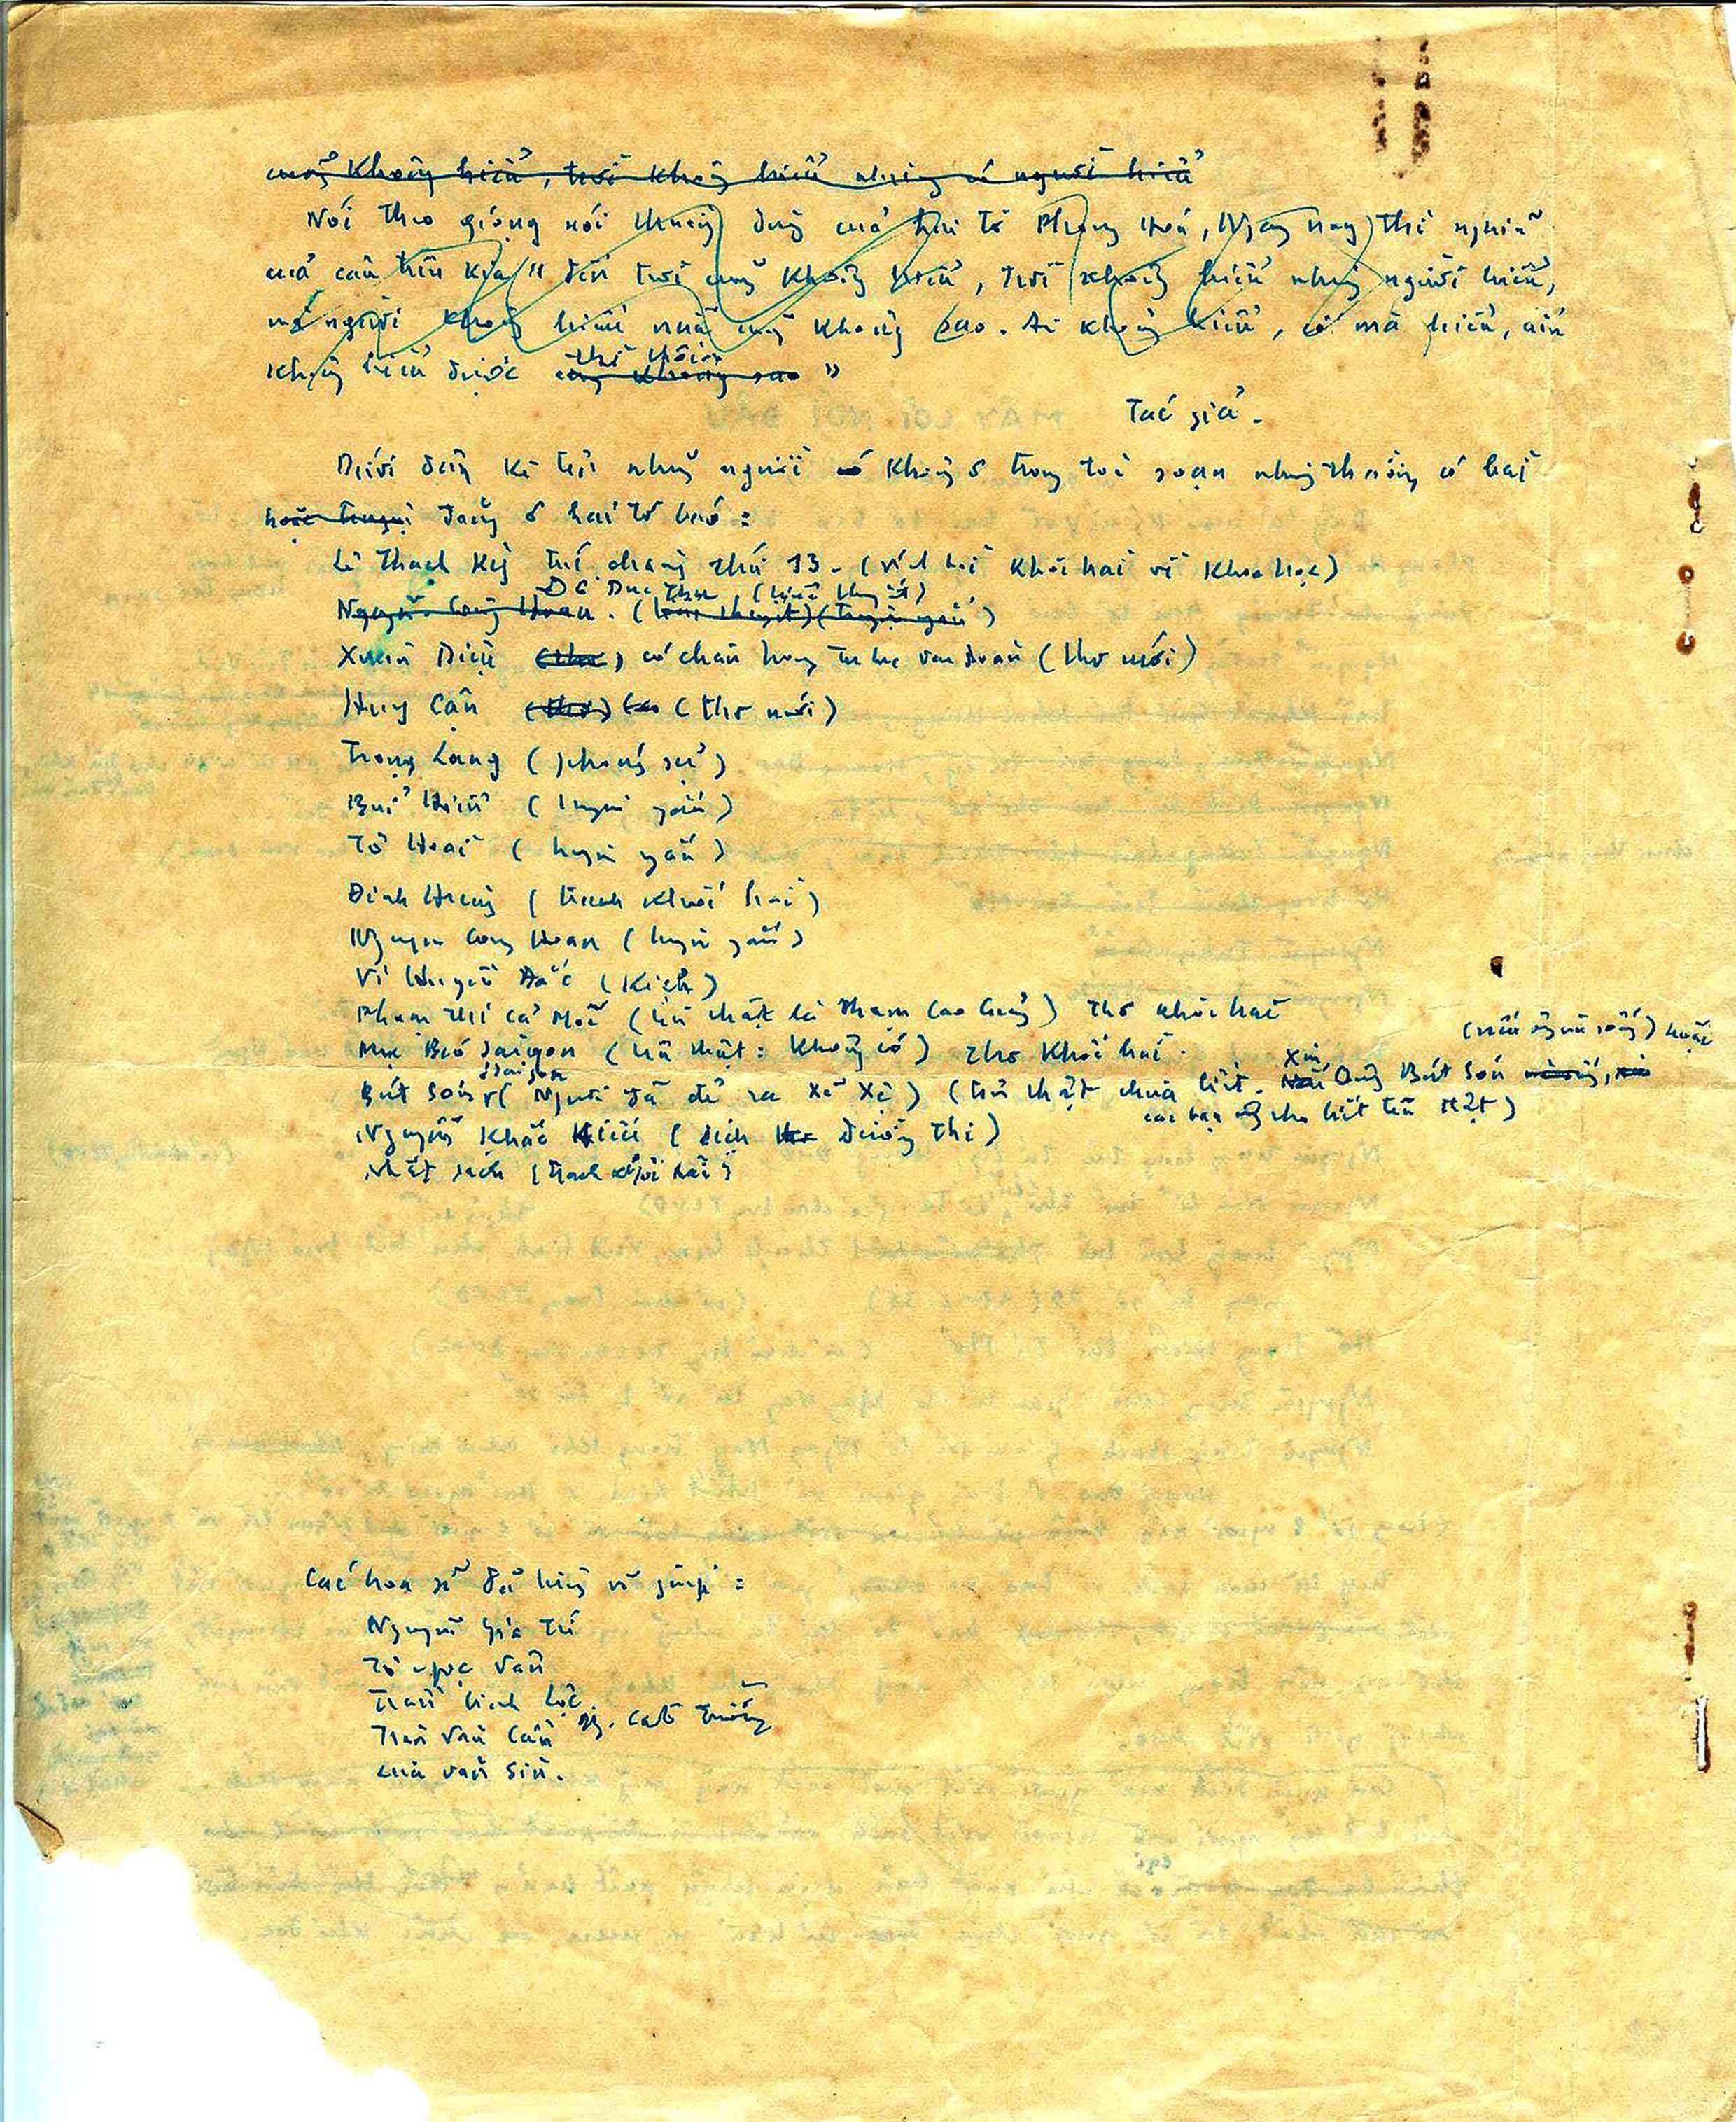 cũng không hiểu, tôi không hiểu nhưng có người hiểu
Nói theo giọng nói thường dùng của hai tờ Phong Hoá, Ngày nay, thì nghĩa
của câu trên kia "đến tôi cũng không hiểu, tôi không hiểu nhưng người hiểu,
mà người không hiểu nữa cũng không sao. Ai không hiểu, cố mà hiểu, cũng
không hiểu được cũng không sao thì thôi "
Tác giả.
Dưới đây kê tên những người có không ở trong toà soạn nhưng thường có bài
hoặc truyện đăng ở hai tờ báo :
Lê Thạch Kỳ tú chang thứ 13. (viết bài khôi hài về khoa học)
Đỗ Đức Thu (tiểu thuyết)
Nguyễn Công Hoan. (tiểu thuyết) (truyện ngắn)
Xuân Diệu (thơ) có chân trong Tự lực văn đoàn (thơ mới)
Huy Cận (thơ) (thơ mới)
Trọng Lang (phóng sự)
Bùi Hiển (truyện ngắn)
Tô Hoài (truyện ngắn)
Đinh Hùng (tranh khôi hài)
Nguyễn Công Hoan (truyện ngắn)
Vi Huyền Đắc (Kịch)
Phạm Thị Cả Mốc (tên thật là Phạm Cao Củng) Thơ khôi hài
Báo Saigon (tên thật : không có) Thơ khôi hài.
Bút Sơn Saigon (Người đã đẻ ra Xã Xệ) (tên thật chưa biết. Xin Ông Bút Sơn (nếu ông còn sống) hoặc
các bạn ông cho biết tên thật)
Nguyễn Khắc Hiếu (dịch thơ Đường Thi)
Nhất Sách (tranh khôi hài)
Các hoạ sĩ đã từng vẽ giúp :
Nguyễn Gia Trí
Tô Ngọc Vân
Trần Bình Lộc
Trần Văn Cẩn Ng. Cát Tường